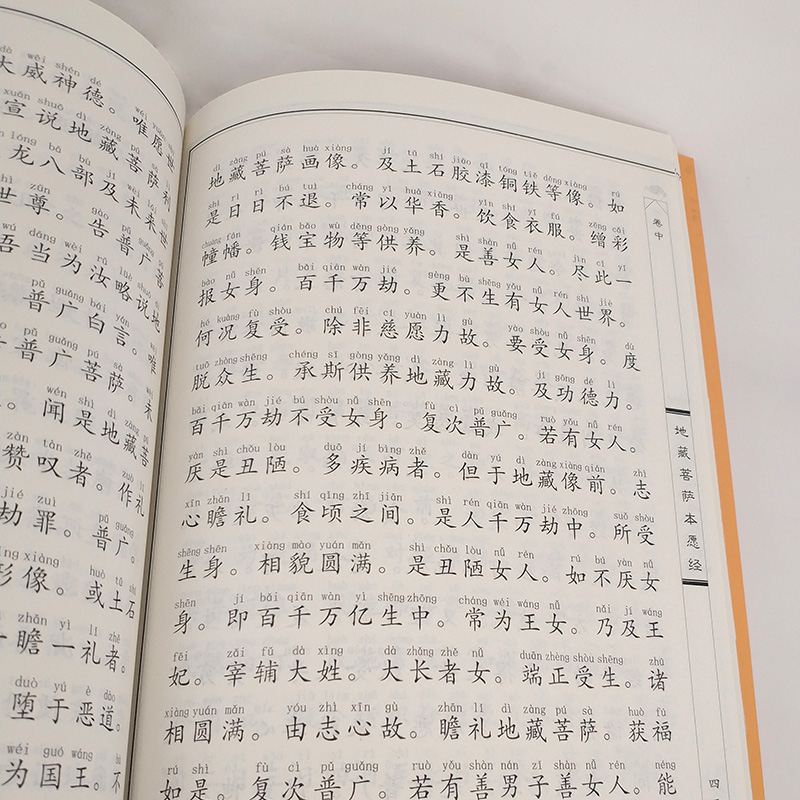 wēi shén dé wéi yuàn shì
大威神德。唯愿世
xuān shuō dì zàng pú sà lì
宣说地藏菩萨利
lóng bā bù jí wèi lái shì
龙八部及未来世
shì zūn gào pǔ guǎng pú
世尊。告普广菩
wú dāng wèi rǔ lüè shuō dì
吾当为汝略说地
pǔ guǎng bái yán wéi
普广白言。唯
pǔ guǎng pú sà wèi
普广菩萨。未
wén shì dì zàng pú
闻是地藏菩
zàn tàn zhě zuò lǐ
赞叹者。作礼
jié zuì pǔ guǎng
劫罪。普广。
xíng xiàng huò tǔ shí
形像。或土石
zhān yì lǐ zhě
瞻一礼者。
duò yú è dào
堕于恶道。
wéi guó wáng bú
为国王。不
dì zàng pú sà huà xiàng jí tǔ shí jiāo qī tóng tiě děng xiàng rú
地藏菩萨画像。及土石胶漆铜铁等像。如
shì rì rì bú tuì cháng yǐ huá xiāng yǐn shí yī fú zēng cǎi
是日日不退。常以华香。饮食衣服。缯彩
chuáng fān qián bǎo wù děng gòng yǎng shì shàn nǚ rén jìn cǐ yī
幢幡。钱宝物等供养。是善女人。尽此一
bào nǚ shēn bǎi qiān wàn jié gèng bù shēng yǒu nǚ rén shì jiè
报女身。百千万劫。更不生有女人世界。
hé kuàng fù shòu chú fēi cí yuàn lì gù yào shòu nǚ shēn dù
何况复受。除非慈愿力故。要受女身。度
tuō zhòng shēng chéng sī gòng yǎng dì zàng lì gù jí gōng dé lì
脱众生。承斯供养地藏力故。及功德力。
bǎi qiān wàn jié bú shòu nǚ shēn fù cì pǔ guǎng ruò yǒu nǚ rén
百千万劫不受女身。复次普广。若有女人。
yàn shì chǒu lòu duō jí bìng zhě dàn yú dì zàng xiàng qián zhì
厌是丑陋。多疾病者。但于地藏像前。志
xīn zhān lǐ shí qǐng zhī jiān shì rén qiān wàn jié zhōng suǒ shòu
心瞻礼。食顷之间。是人千万劫中。所受
shēng shēn xiàng mào yuán mǎn shì chǒu lòu nǚ rén rú bú yàn nǚ
生身。相貌圆满。是丑陋女人。如不厌女
shēn jí bǎi qiān wàn yì shēng zhōng cháng wéi wáng nǚ nǎi jí wáng
身。即百千万亿生中。常为王女。乃及王
fēi zǎi fǔ dà xìng dà zhǎng zhě nǚ duān zhèng shòu shēng zhū
妃。宰辅大姓。大长者女。端正受生。诸
xiàng yuán mǎn yóu zhì xīn gù zhān lǐ dì zàng pú sà huò fú
相圆满。由志心故。瞻礼地藏菩萨。获福
rú shì fù cì pǔ guǎng ruò yǒu shàn nán zǐ shàn nǚ rén néng
如是。复次普广。若有善男子善女人。能
卷中
地藏菩萨本愿经
四